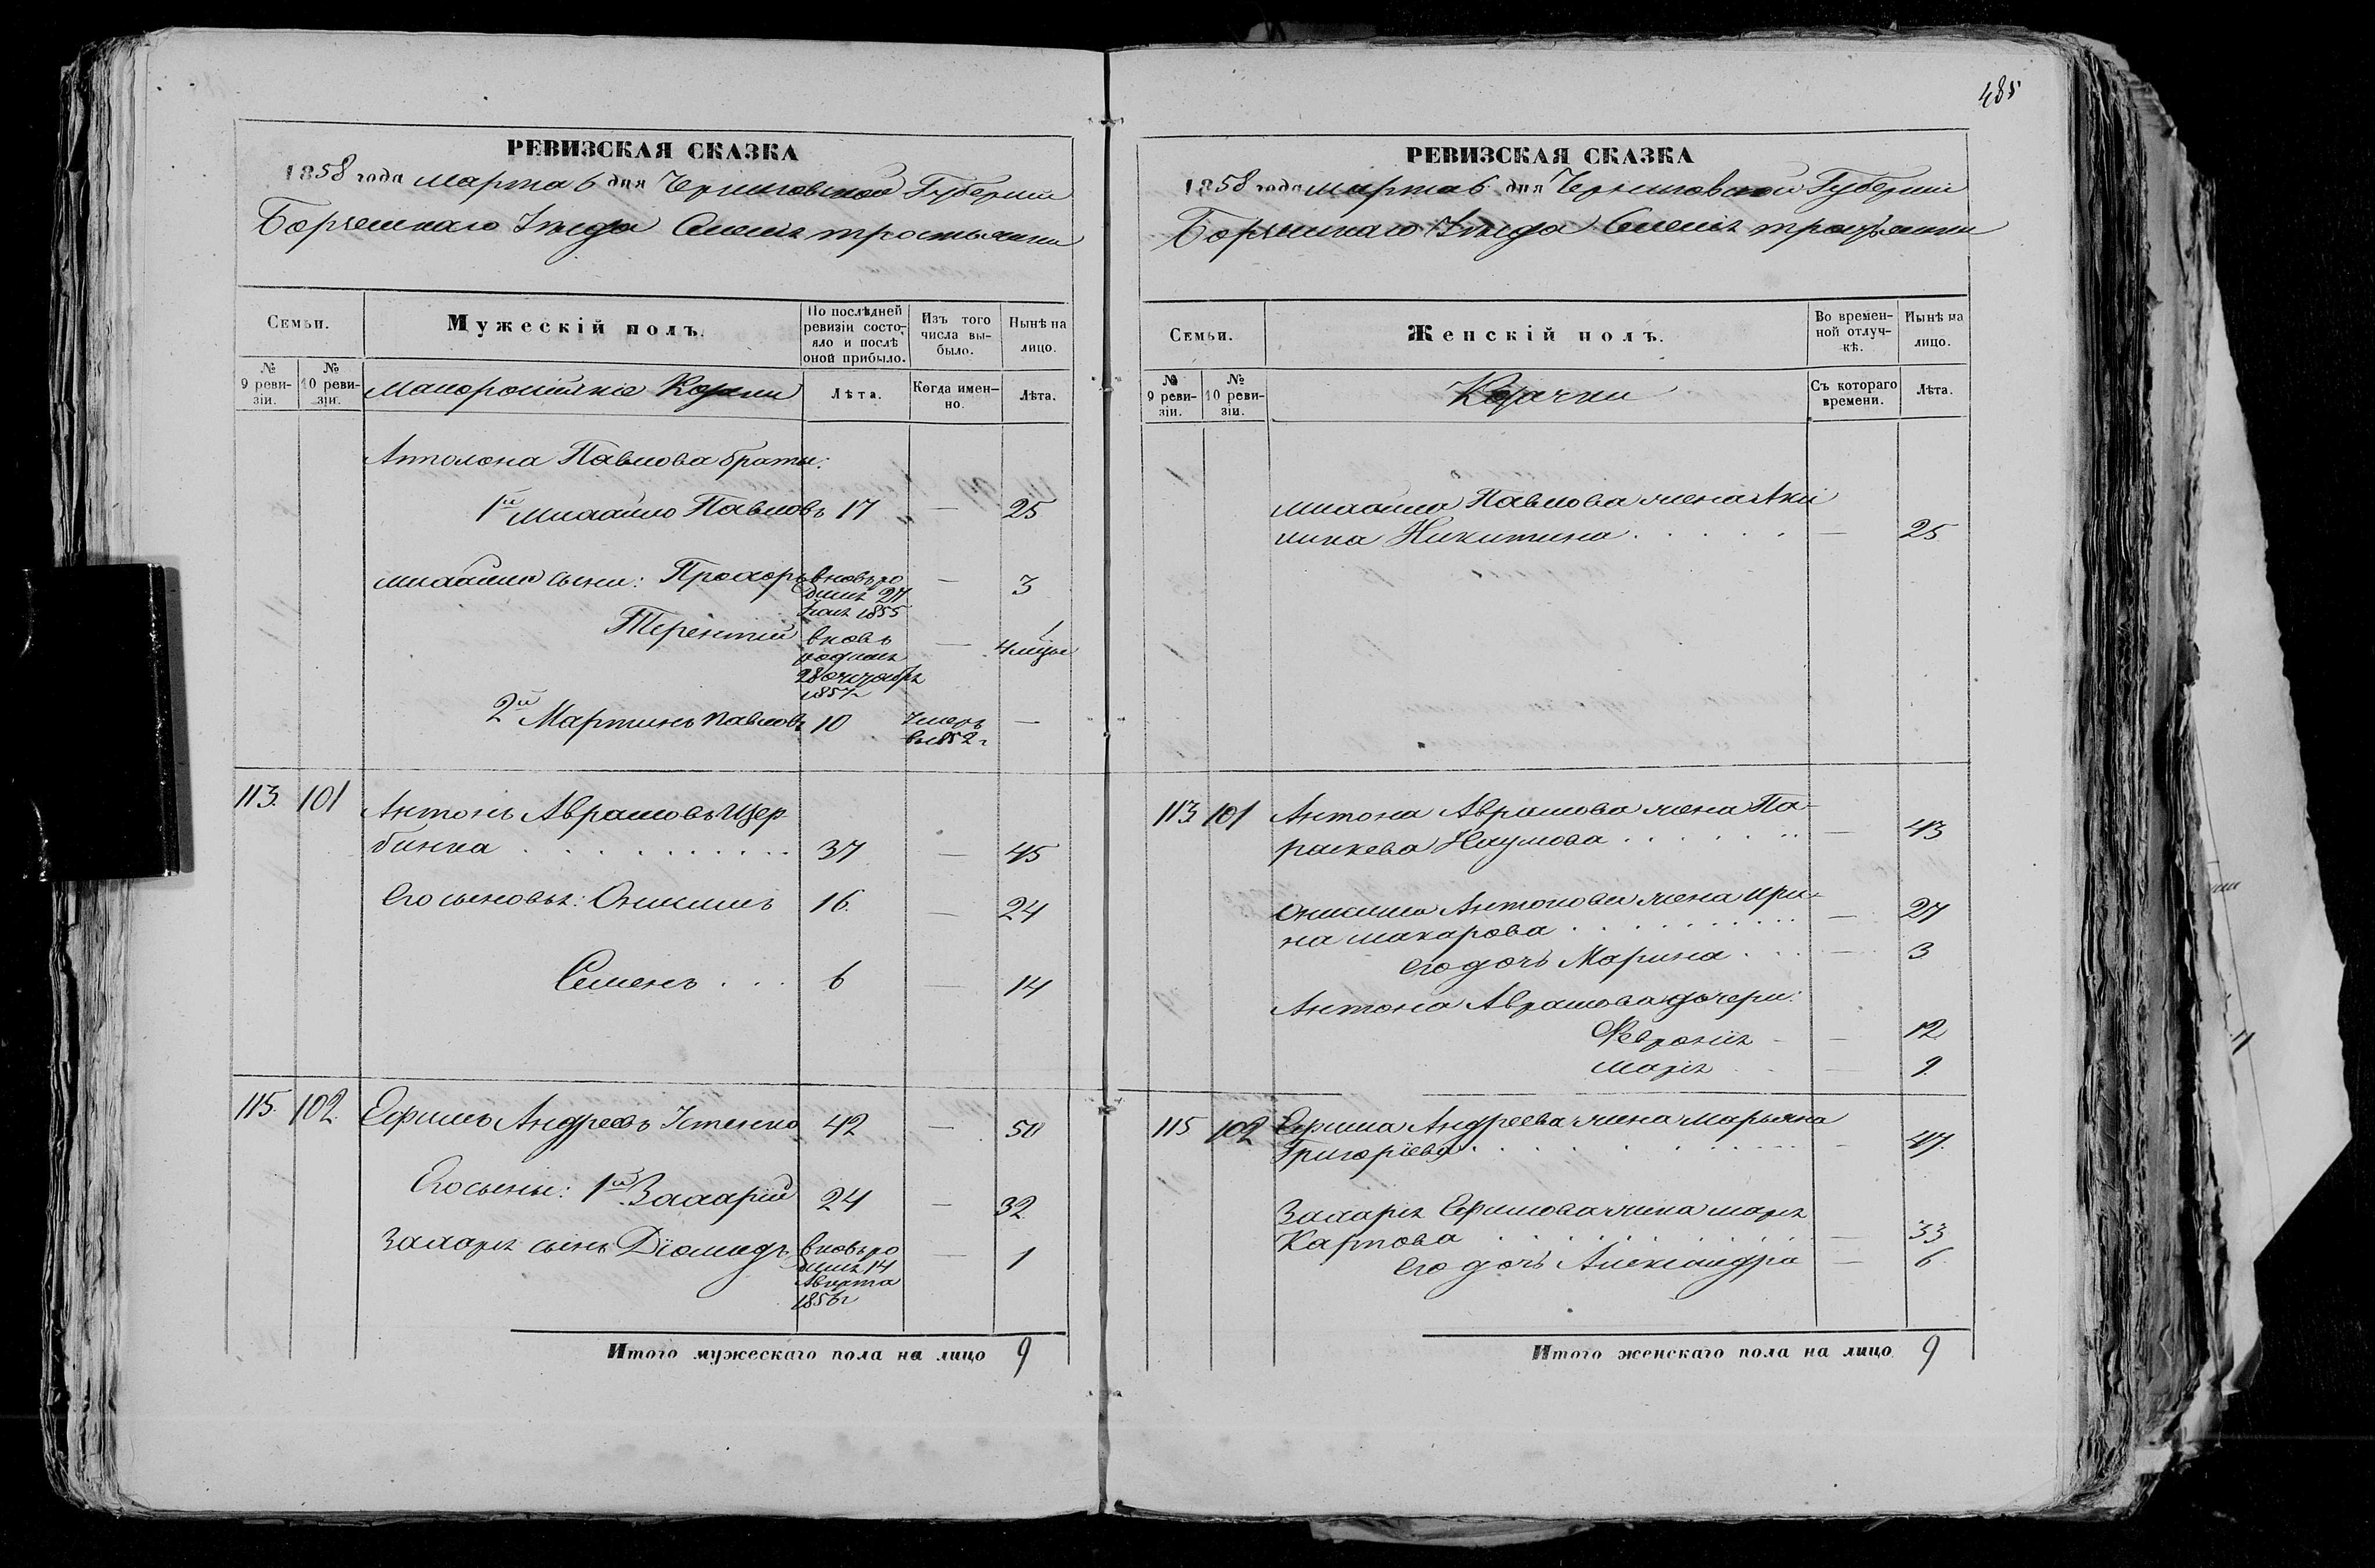 485
РЕВИЗСКАЯ СКАЗКА
1858 года марта 6 дня Черниговской Губерніи
Борзенскаго Уезда Селенія Тростянки
Семьи.
Мужескій полъ.
По послѣдней ревизіи состояло и послѣ оной прибыло.
Изъ того числа выбыло.
Нынѣ на лицо.
№ 9 ревизіи.
№ 10 ревизіи.
Малоросійскіе Козаки
Лѣта.
Когда именно.
Лѣта.
Антона Павлова браты:
1й Михайло Павловъ 17 — 25
Михайла сыны: Прохоръ вновь родился 27 1855 — 3
Терентій вновь родился 28 октября 1857 — 4 мцы
2й Мартинъ Павловъ 10 Умеръ въ 1852 г —
113. 101 Антонъ Аврамовъ Щер
бинка . . . . . . . . . . 37 — 45
Его сыновья: Онисимъ 16. — 24
Семенъ . . . 6 — 14
115. 102. Ефимъ Андреевъ Устенко 42 — 50
Его сыны: 1й Захарій 24 — 32
Захарія сынъ Діомидъ вновь родился 14 Августа 1856 г — 1
Итого мужескаго пола на лицо 9
РЕВИЗСКАЯ СКАЗКА
1858 года марта 6 дня Черниговской Губерніи
Борзенскаго Уезда Селенія Тростянки
Семьи.
Женскій полъ.
Во временной отлучкѣ.
Нынѣ на лицо.
№ 9 ревизіи.
№ 10 ревизіи.
Козачки
Съ котораго времени.
Лѣта.
Михайла Павлова жена Аки
лина Никитина . . . . . — 25
113 101 Антона Аврамова жена Па-
раскева Наумова . . . . . . — 43
Онисима Антонова жена Ири-
на Макарова . . . . . . . . — 27
Его дочь Марина . . . — 3
Антона Аврамова дочери:
Февронія - — 12
Марія . . — 9
115 102 Ефима Андреева жена Марьяна
Григоріева . . . . . . . . — 47.
Захарія Ефимова жена Марія
Карпова . . . . . . . . . — 33
Его дочь Александра — 6
Итого женскаго пола на лицо 9